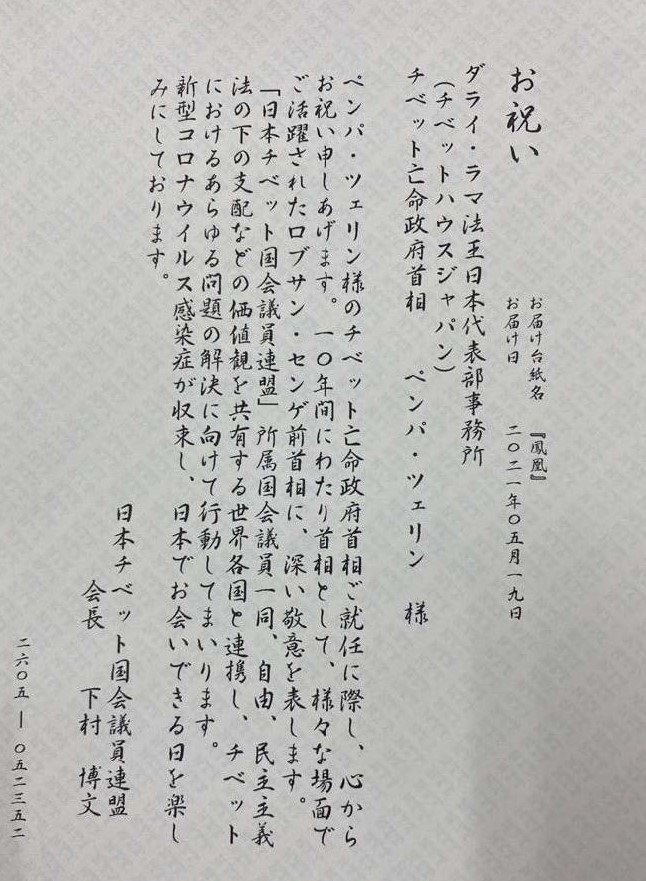 お祝い
お届け台紙名 『鳳凰』
お届け日 二〇二一年〇五月一九日
ダライ・ラマ法王日本代表部事務所
(チベットハウスジャパン)
チベット亡命政府首相 ペンパ・ツェリン 様
ペンパ・ツェリン様のチベット亡命政府首相ご就任に際し、心から
お祝い申しあげます。一〇年間にわたり首相として、様々な場面で
ご活躍されたロブサン・センゲ前首相に、深い敬意を表します。
「日本チベット国会議員連盟」所属国会議員一同、自由、民主主義
法の下の支配などの価値観を共有する世界各国と連携し、チベット
におけるあらゆる問題の解決に向けて行動してまいります。
新型コロナウイルス感染症が収束し、日本でお会いできる日を楽し
みにしております。
日本チベット国会議員連盟
会長 下村 博文
二六〇五―〇五二三五二